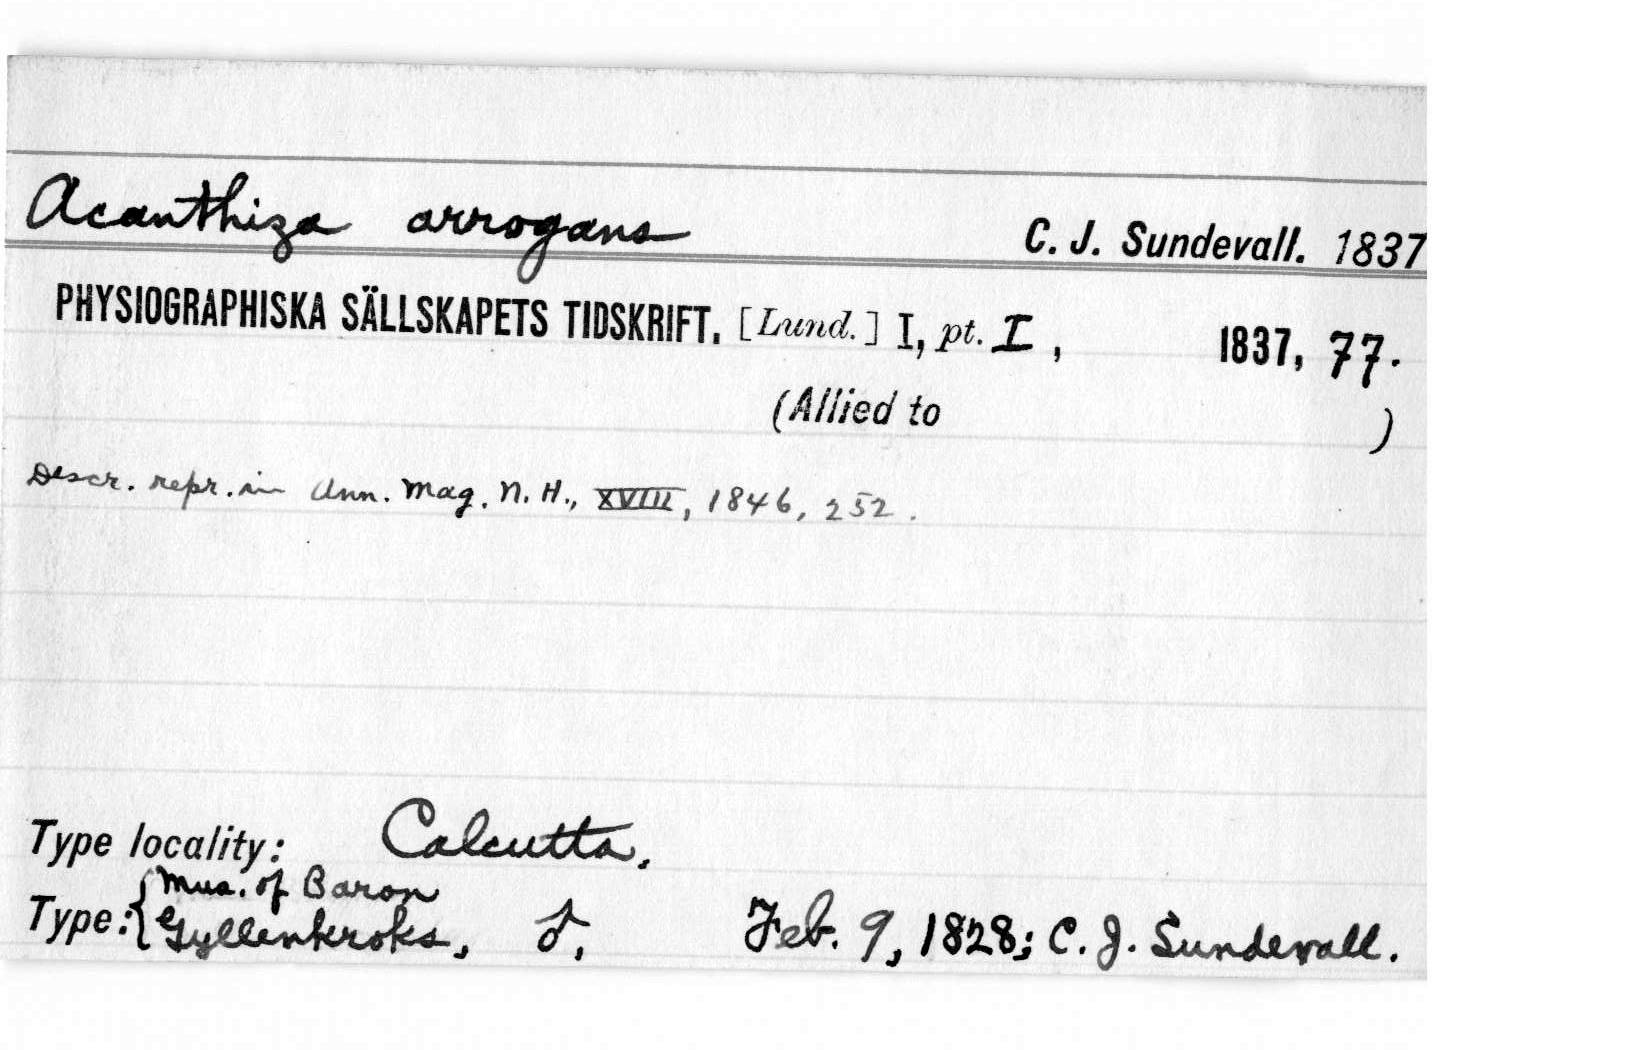 Acanthiza arrogans C. J. Sundevall. 1837
PHYSIOGRAPHISKA SÄLLSKAPETS TIDSKRIFT, [Lund.] I, pt. I, 1837, 77.
(Allied to )
Descr. repr. in Ann. Mag. N. H., XVIII, 1846, 252.
Type locality: Calcutta.
Type: { Mus. of Baron
Gyllenkroks, ♂, Feb. 9, 1828; C. J. Sundevall.